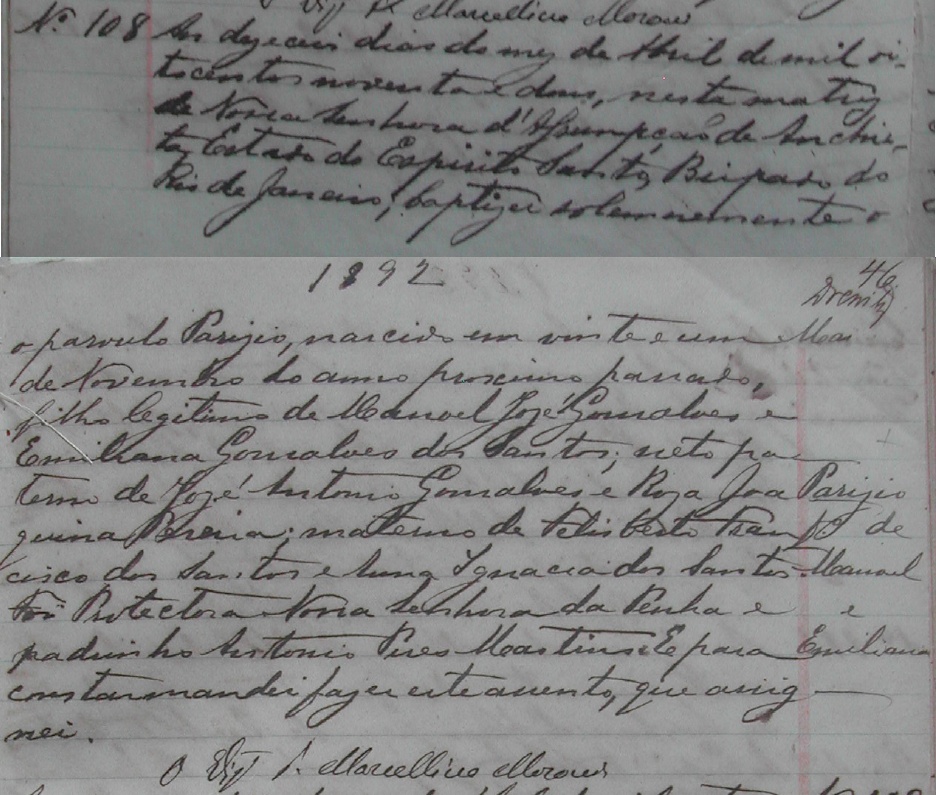 Vigº P. Marcellino Moroni
Nº 108 Aos dezeceis dias do mez de Abril de mil oi-
tocentos noventa e dous, nesta matriz
de Nossa Senhora d'Assumpção de Anchie-
ta, Estado do Espirito Santo, Bispado do
Rio de Janeiro, baptizei solemnemente o
1892
46
o parvulo Parizio, nascido em vinte e um
de Novembro do anno proximo passado,
filho legitimo de Manoel José Gonsalves e
Emiliana Gonsalves dos Santos; neto pa-
terno de José Antonio Gonsalves e Roza Joa Parizio
quina Pereira; materno de Felisberto Fran fº de
cisco dos Santos e Anna Ignacia dos Santos. Manoel
Foi Protectora Nossa Senhora da Penha e e
padrinho Antonio Pires Martins. E para Emiliana
constar mandei fazer este assento, que assig-
nei.
O Vigº P. Marcellino Moroni